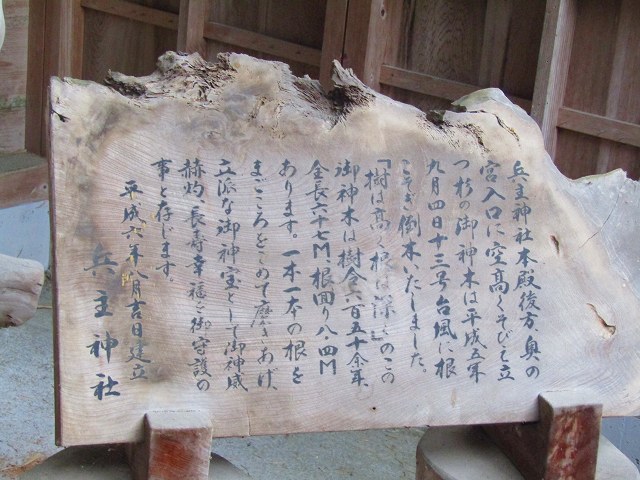 兵主神社本殿後方、奥の
宮入口に空高くそびえ立
つ杉の御神木は平成五年
九月四日十三号台風に根
こそぎ倒木いたしました。
『樹は高く根は深く』のこの
御神木は樹令六百五十余年、
全長六十七M、根回り八・四M
あります。一本一本の根を
まごころをこめて磨きあげ、
立派な御神宝として御神威
赫灼、長寿幸福の御守護の
事と存じます。
平成六年八月吉日建立
兵主神社